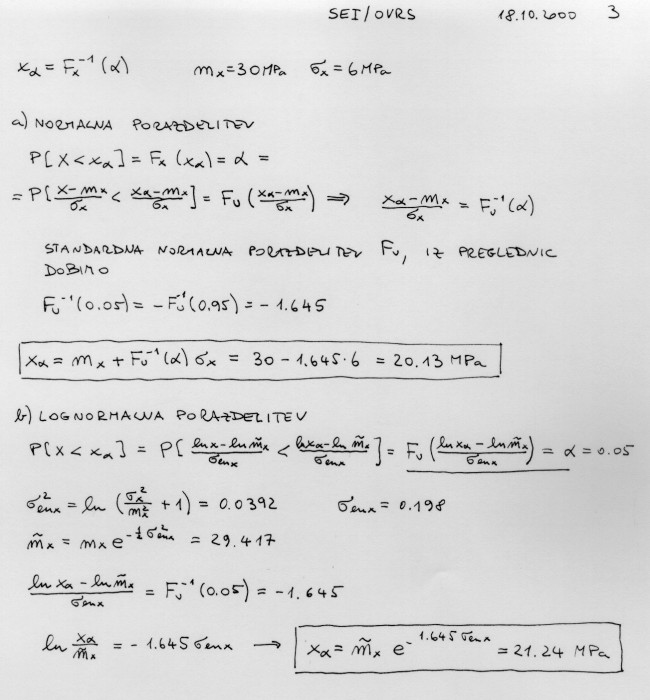 SEI/OVRS 18.10.2000 3
x_α = F_x⁻¹(α) m_x = 30 MPa σ_x = 6 MPa
a) NORMALNA PORAZDELITEV
P[X < x_α] = F_x(x_α) = α =
= P[(x - m_x)/σ_x < (x_α - m_x)/σ_x] = F_U((x_α - m_x)/σ_x) ⟹ (x_α - m_x)/σ_x = F_U⁻¹(α)
STANDARDNA NORMALNA PORAZDELITEV F_U, IZ PREGLEDNIC
DOBIMO
F_U⁻¹(0.05) = -F_U⁻¹(0.95) = -1.645
x_α = m_x + F_U⁻¹(α) σ_x = 30 - 1.645·6 = 20.13 MPa
b) LOGNORMALNA PORAZDELITEV
P[X < x_α] = P[(ln x - ln m̃_x)/σ_lnx < (ln x_α - ln m̃_x)/σ_lnx] = F_U((ln x_α - ln m̃_x)/σ_lnx) = α = 0.05
σ²_lnx = ln(σ_x²/m_x² + 1) = 0.0392 σ_lnx = 0.198
m̃_x = m_x e^(-½ σ²_lnx) = 29.417
(ln x_α - ln m̃_x)/σ_lnx = F_U⁻¹(0.05) = -1.645
ln x_α/m̃_x = -1.645 σ_lnx → x_α = m̃_x e^(-1.645 σ_lnx) = 21.24 MPa